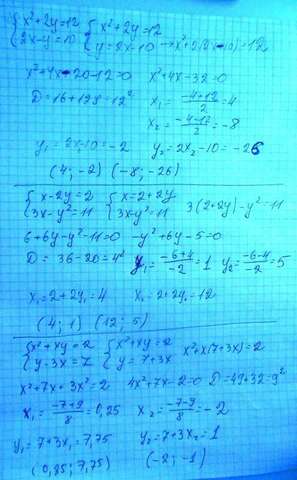 {x²+2y=12 {x²+2y=12
{2x-y=10 {y=2x-10 → x²+2(2x-10)=12
x²+4x-20-12=0 x²+4x-32=0
D=16+128=12² x₁=(-4+12)/2=4
x₂=(-4-12)/2=-8
y₁=2x-10=-2 y₂=2x₂-10=-26
(4;-2) (-8;-26)
{x-2y=2 {x=2+2y
{3x-y²=11 {3x-y²=11 3(2+2y)-y²=11
6+6y-y²-11=0 -y²+6y-5=0
D=36-20=4² y₁=(-6+4)/-2=1 y₂=(-6-4)/-2=5
x₁=2+2y₁=4 x₂=2+2y₂=12
(4;1) (12;5)
{x²+xy=2 {x²+xy=2
{y-3x=7 {y=7+3x x²+x(7+3x)=2
x²+7x+3x²=2 4x²+7x-2=0 D=49+32=9²
x₁=(-7+9)/8=0,25 x₂=(-7-9)/8=-2
y₁=7+3x₁=7,75 y₂=7+3x₂=1
(0,25; 7,75) (-2;-1)